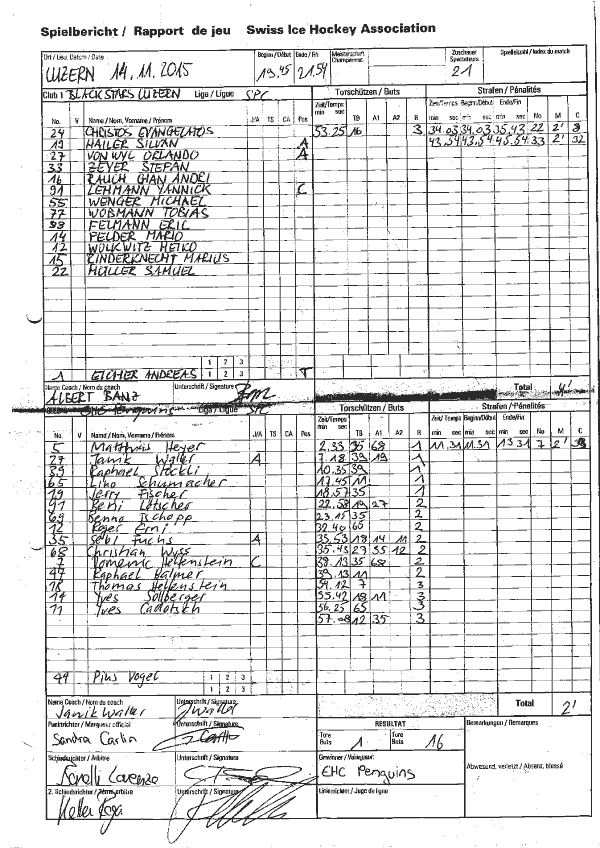 Spielbericht / Rapport de jeu Swiss Ice Hockey Association
Ort / Lieu, Datum / Date Beginn/Début Ende / Fin Meisterschaft Championnat Zuschauer Spectateurs Spielzahl / Index du match
LUZERN 14.11.2015 19.45 21.54 21
Club 1 BLACK STARS LUZERN Liga / Ligue SPC Torschützen / Buts Strafen / Pénalités
Zeit/Temps Zeit/Temps Beginn/Début Ende/Fin
No. V Name / Nom, Vorname / Prénom J/A TS CA Pos min sec TB A1 A2 B min sec min sec min sec No M C
24 CHRISTOS EVANGELATOS 53.25 16 3 34.03 34.03 35.43 22 2' 8
19 HAILER SILVAN A 43.54 43.54 45.54 33 2' 32
27 VON WYL ORLANDO A
33 ZEYER STEFAN
16 RAUCH GIAN ANDRI
91 LEHMANN YANNICK C
55 WENGER MICHAEL
77 WOBMANN TOBIAS
FELMANN ERIC
14 FELDER MARIO
12 WOLKWITZ HEIKO
15 RINDERKNECHT MARIUS
22 MULLER SAMUEL
1 2 3
1 EICHER ANDREAS T
Name Coach / Nom du coach Unterschrift / Signature Total 4'
ALBERT BANZ
EHC Penguins Liga / Ligue SPC Torschützen / Buts Strafen / Pénalités
Zeit/Temps Zeit/Temps Beginn/Début Ende/Fin
No. V Name / Nom, Vorname / Prénom J/A TS CA Pos min sec TB A1 A2 B min sec min sec min sec No M C
5 Matthias Heyer 2.33 35 68 1 11.31 11.31 13 31 7 2'
27 Janik Waller A 7.18 39 19 1
39 Raphael Stöckli 10.35 39 1
65 Lino Schumacher 17.45 11 1
19 Jerry Fischer 18.57 35 1
91 Beni Lötscher 22.58 19 27 2
69 Benno Tschopp 23.15 35 2
12 Roger Erni 32.40 65 2
35 Sebi Fuchs A 35.53 18 14 11 2
68 Christian Wyss 35.43 27 35 12 2
7 Domenic Helfenstein C 38.13 35 68 2
47 Raphael Balmer 39.13 11 2
18 Thomas Helfenstein 54.12 7 3
14 Yves Sollberger 55.42 18 11 3
11 Yves Cadotsch 56.25 65 3
57.08 12 35 3
44 Pius Vogel 1 2 3
1 2 3
Name Coach / Nom du coach Unterschrift / Signature Total 2'
Janik Waller JWaller
Punktrichter / Marqueur officiel Unterschrift / Signature RESULTAT Bemerkungen / Remarques
Sandra Carlin Tore Buts 1 Tore Buts 16
Schiedsrichter / Arbitre Unterschrift / Signature Gewinner / Vainqueur
Lorenzo EHC Penguins Abwesend, verletzt / Absent, blessé
2. Schiedsrichter / 2ème arbitre Unterschrift / Signature Linienrichter / Juge de ligne
Keller